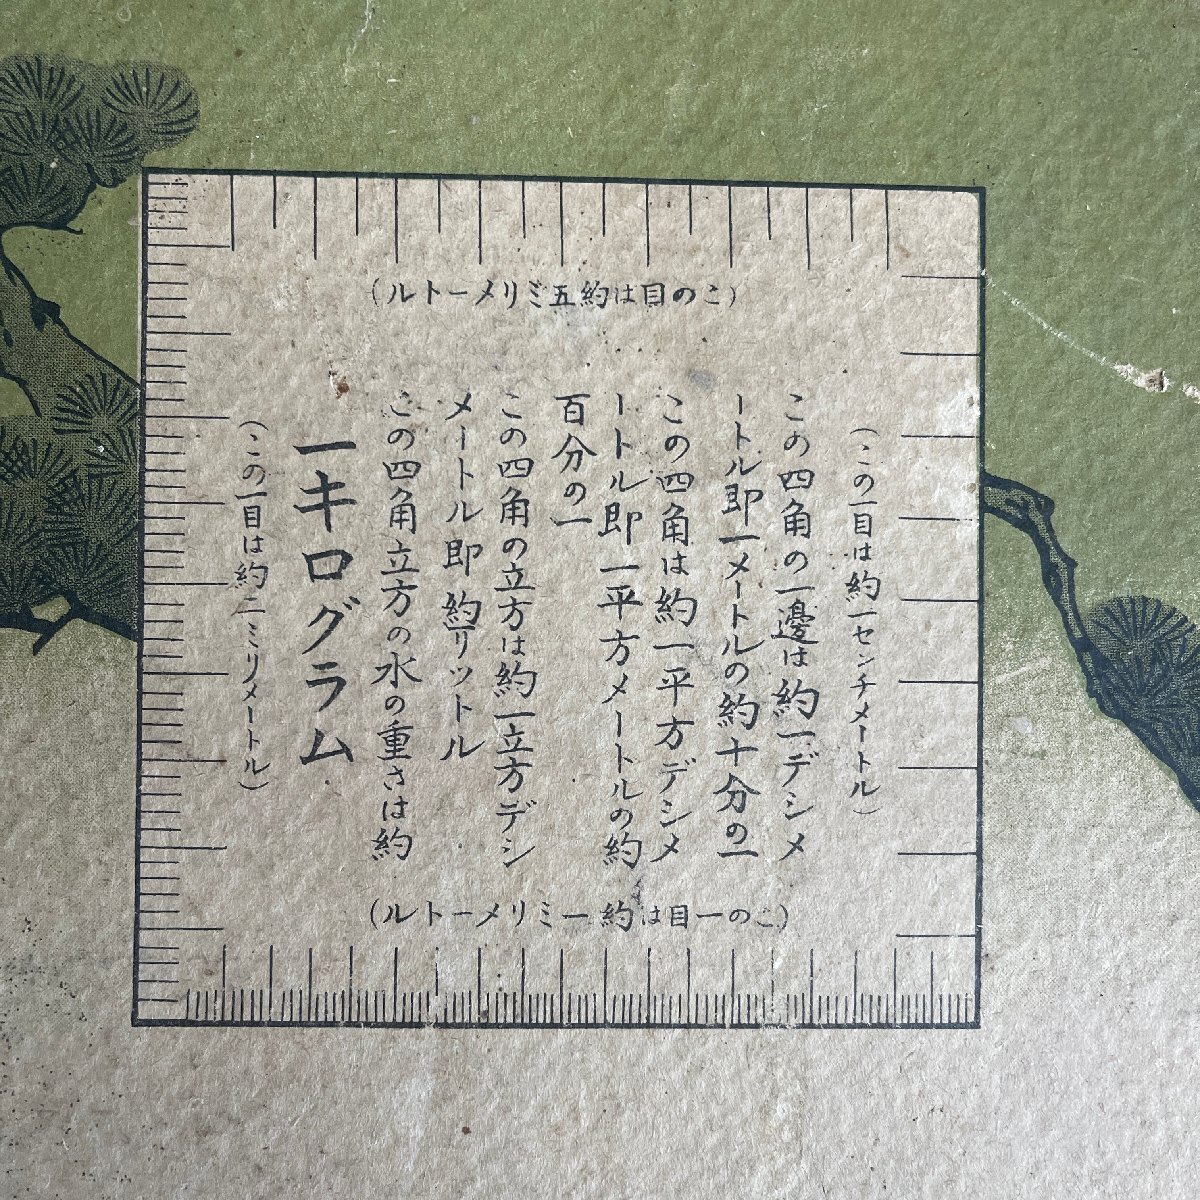 (この目は約五ミリメートル)
(この一目は約一センチメートル)
この四角の一邊は約一デシメ
ートル即一メートルの約十分の一
この四角は約一平方デシメ
ートル即一平方メートルの約
百分の一
この四角の立方は約一立方デシ
メートル即約一リットル
この四角立方の水の重さは約
一キログラム
(この一目は約二ミリメートル)
(この一目は約一ミリメートル)